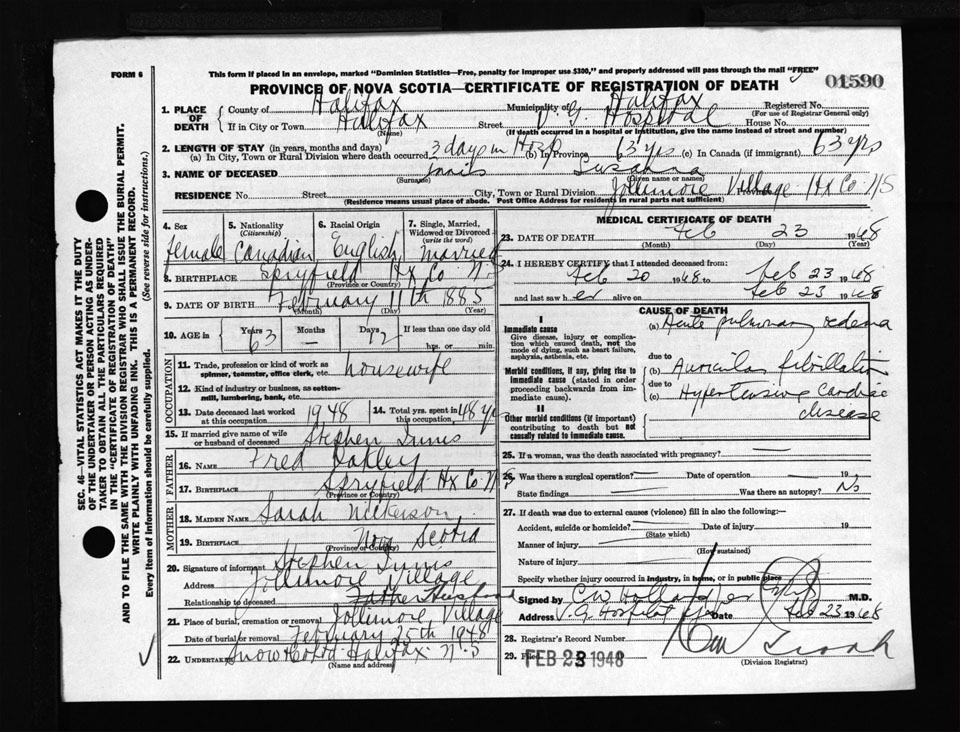 FORM 6
This form if placed in an envelope, marked "Dominion Statistics—Free, penalty for improper use $300," and properly addressed will pass through the mail "FREE"
01590
PROVINCE OF NOVA SCOTIA—CERTIFICATE OF REGISTRATION OF DEATH
1. PLACE OF DEATH County of Halifax Municipality of Halifax Registered No. (For use of Registrar General only)
If in City or Town Halifax (Name) Street V. G. Hospital House No.
(If death occurred in a hospital or institution, give the name instead of street and number)
2. LENGTH OF STAY (in years, months and days)
(a) In City, Town or Rural Division where death occurred 3 days in Hosp (b) In Province 63 yrs (c) In Canada (if immigrant) 63 yrs
3. NAME OF DECEASED (Surname) Susanna (Given name or names)
RESIDENCE No. Street City, Town or Rural Division Jollimore Village Hx Co. N S
(Residence means usual place of abode. Post Office Address for residents in rural parts not sufficient)
4. Sex female
5. Nationality (Citizenship) Canadian
6. Racial Origin English
7. Single, Married, Widowed or Divorced (write the word) Married
8. BIRTHPLACE Spryfield Hx Co N.S
(Province or Country)
9. DATE OF BIRTH February 11th 1885
(Month) (Day) (Year)
10. AGE in Years 63 Months — Days 12 If less than one day old hrs. or min.
OCCUPATION
11. Trade, profession or kind of work as spinner, teamster, office clerk, etc. housewife
12. Kind of industry or business, as cotton-mill, lumbering, bank, etc.
13. Date deceased last worked at this occupation 1948
14. Total yrs. spent in this occupation 48 yrs
15. If married give name of wife or husband of deceased Stephen
FATHER
16. NAME Fred Oakley
17. BIRTHPLACE Spryfield Hx Co. N S
(Province or Country)
MOTHER
18. MAIDEN NAME Sarah Nickerson
19. BIRTHPLACE Nova Scotia
(Province or Country)
20. Signature of informant Stephen
Address Jollimore Village
Relationship to deceased Father Husband
21. Place of burial, cremation or removal Jollimore Village
Date of burial or removal February 25th 1948
22. Undertaker Snow & Co Ltd Halifax N.S
(Name and address)
MEDICAL CERTIFICATE OF DEATH
23. DATE OF DEATH Feb 23 1948
(Month) (Day) (Year)
24. I HEREBY CERTIFY that I attended deceased from:
Feb 20 1948 to Feb 23 1948
and last saw h er alive on Feb 23 1948
CAUSE OF DEATH
I
Immediate cause
Give disease, injury or complication which caused death, not the mode of dying, such as heart failure, asphyxia, asthenia, etc.
(a) Acute pulmonary oedema
due to
Morbid conditions, if any, giving rise to immediate cause (stated in order proceeding backwards from immediate cause).
(b) Auricular fibrillation
due to
(c) Hypertensive Cardiac disease
II
Other morbid conditions (if important) contributing to death but not causally related to immediate cause.
25. If a woman, was the death associated with pregnancy? —
26. Was there a surgical operation? — Date of operation — 19
State findings — Was there an autopsy? No
27. If death was due to external causes (violence) fill in also the following:—
Accident, suicide or homicide? Date of injury 19
(State which)
Manner of injury
(How sustained)
Nature of injury
Specify whether injury occurred in industry, in home, or in public place
Signed by C W Holland M.D.
Address V. G. Hospital Date Feb 23 1948
28. Registrar's Record Number
29. Filed FEB 23 1948
(Division Registrar)
SEC. 46—VITAL STATISTICS ACT MAKES IT THE DUTY OF THE UNDERTAKER OR PERSON ACTING AS UNDERTAKER TO OBTAIN ALL THE PARTICULARS REQUIRED IN THE "CERTIFICATE OF REGISTRATION OF DEATH" AND TO FILE THE SAME WITH THE DIVISION REGISTRAR WHO SHALL ISSUE THE BURIAL PERMIT.
WRITE PLAINLY WITH UNFADING INK. THIS IS A PERMANENT RECORD.
Every item of information should be carefully supplied. (See reverse side for instructions.)